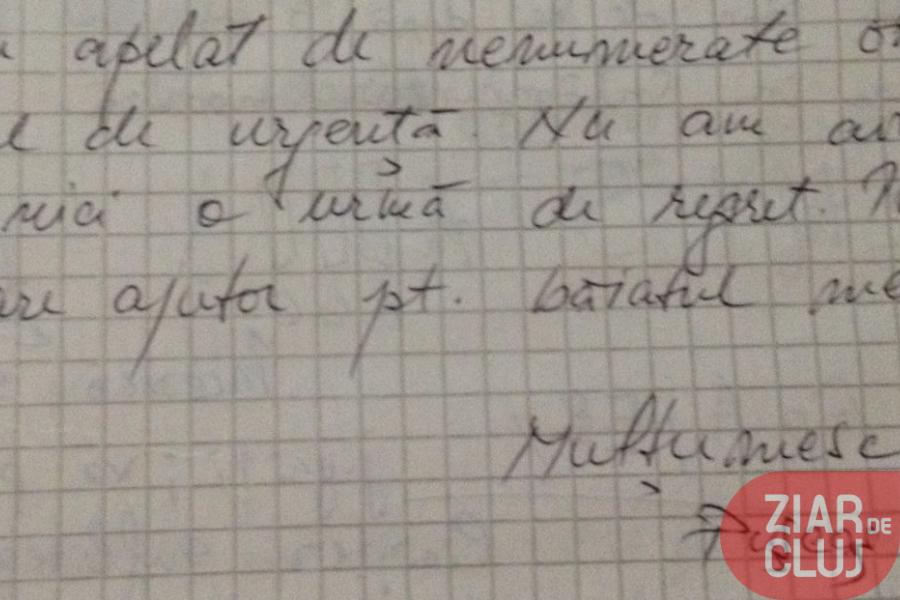 apelat de nenumerate
de urgență. Nu am
nici o urmă de regret.
ajutor pt. băiatul
Mulțumesc
ZIAR DE CLUJ